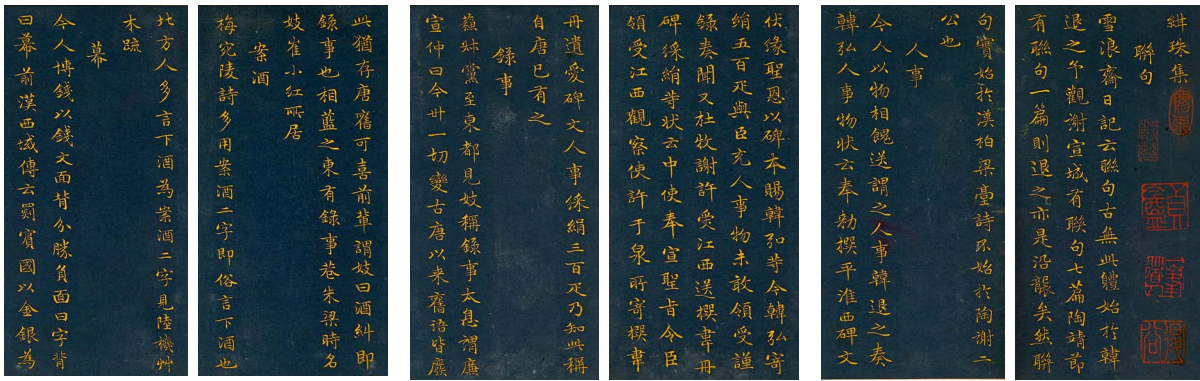 紺珠集
聯句
雪浪齋日記云聯句古無此體始於韓
退之予觀謝宣城有聯句七篇陶靖節
有聯句一篇則退之亦是沿襲矣然聯
句實始於漢柏梁臺詩不始於陶謝二
公也
人事
今人以物相餽送謂之人事韓退之奏
韓弘人事物狀云奉勑撰平淮西碑文
伏緣聖恩以碑本賜韓弘等今韓弘寄
絹五百疋與臣充人事物未敢領受謹
錄奏聞又杜牧謝許受江西送撰韋丹
碑綵絹等狀云中使奉宣聖旨令臣
領受江西觀察使許于泉所寄撰韋
丹遺愛碑文人事綵絹三百疋乃知此稱
自唐已有之
錄事
蘇叔黨至東都見妓稱錄事太息謂廉
宣仲曰今丗一切變古唐以來舊語皆廢
此猶存唐舊可喜前輩謂妓曰酒糾即
錄事也相藍之東有錄事巷朱梁時名
妓崔小紅所居
案酒
梅宛陵詩多用案酒二字即俗言下酒也
北方人多言下酒為案酒二字見陸機艸
木疏
幕
今人博錢以錢文面背分勝負面曰字背
曰幕前漢西域傳云罽賓國以金銀為